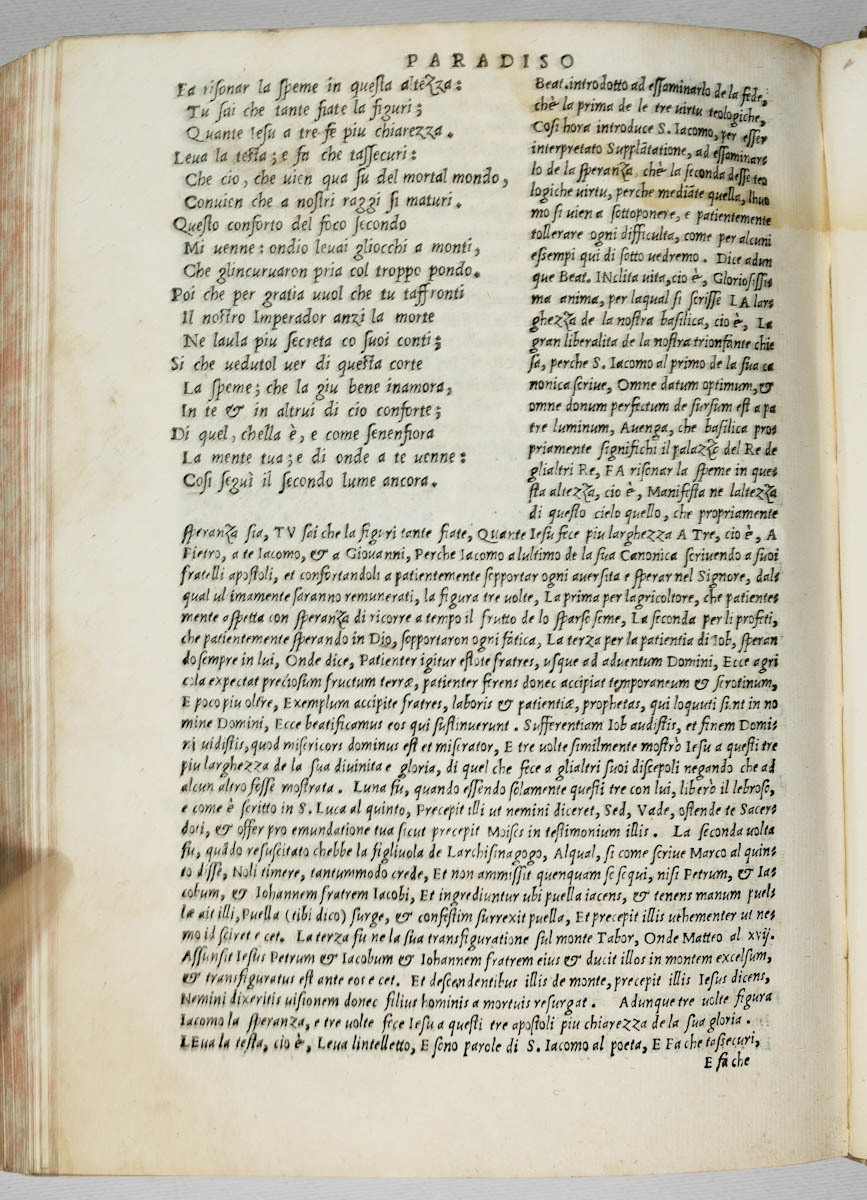 PARADISO
Fa risonar la speme in questa altezza:
Tu sai che tante fiate la figuri;
Quante Iesu a tre fe piu chiarezza.
Leua la testa; e fa che tassecuri:
Che cio, che uien qua su del mortal mondo,
Conuien che a nostri raggi si maturi.
Questo conforto del foco secondo
Mi uenne: ondio leuai gliocchi a monti,
Che glincuruaron pria col troppo pondo.
Poi che per gratia uuol che tu taffronti
Il nostro Imperador anzi la morte
Ne laula piu secreta co suoi conti;
Si che uedutol uer di questa corte
La speme; che la giu bene inamora,
In te & in altrui di cio conforte;
Di quel, chella è, e come senenfiora
La mente tua; e di onde a te uenne:
Cosi seguì il secondo lume ancora.
Beat. introdotto ad essaminarlo de la fede,
chè la prima de le tre uirtu teologiche,
Cosi hora introduce S. Iacomo, per esser
interpretato Supplãtatione, ad essaminar
lo de la speranza, chè la seconda desse teo
logiche uirtu, perche mediãte quella, lhuo
mo si uien a sottoponere, e patientemente
tollerare ogni difficulta, come per alcuni
essempi qui di sotto uedremo. Dice adun
que Beat. INclita uita, cio è, Gloriosissi
ma anima, per laqual si scrisse LA lar
ghezza de la nostra basilica, cio è, La
gran liberalita de la nostra trionfante chie
sa, perche S. Iacomo al primo de la sua ca
nonica scriue, Omne datum optimum, &
omne donum perfectum de sursum est a pa
tre luminum, Auenga, che basilica pro
priamente significhi il palazzo del Re de
glialtri Re, FA risonar la speme in ques
sta altezza, cio è, Manifesta ne laltezza
di questo cielo quello, che propriamente
speranza sia, TV sai che la figuri tante fiate, Quante Iesu fece piu larghezza A Tre, cio è, A
Pietro, a te Iacomo, & a Giouanni, Perche Iacomo a lultimo de la sua Canonica scriuendo a suoi
fratelli apostoli, et confortandoli a patientemente sopportar ogni auersita e sperar nel Signore, dal
qual ultimamente saranno remunerati, la figura tre uolte, La prima per lagricoltore, che patiente
mente aspetta con speranza di ricorre a tempo il frutto de lo sparso seme, La seconda per li profeti,
che patientemente sperando in Dio, sopportaron ogni fatica, La terza per la patientia di Iob, speran
do sempre in lui, Onde dice, Patienter igitur estote fratres, usque ad aduentum Domini, Ecce agri
cola expectat preciosum fructum terræ, patienter ferens donec accipiat temporaneum & serotinum,
E poco piu oltre, Exemplum accipite fratres, laboris & patientiæ, prophetas, qui loquuti sunt in no
mine Domini, Ecce beatificamus eos qui sustinuerunt. Sufferentiam Iob audistis, et finem Domi
ni uidistis, quod misericors dominus est et miserator, E tre uolte similmente mostrò Iesu a questi tre
piu larghezza de la sua diuinita e gloria, di quel che fece a glialtri suoi discepoli negando che ad
alcun altro fosse mostrata. Luna fu, quando essendo solamente questi tre con lui, liberò il lebroso,
e come è scritto in S. Luca al quinto, Precepit illi ut nemini diceret, Sed, Vade, ostende te Sacer
doti, & offer pro emundatione tua sicut precepit Moises in testimonium illis. La seconda uolta
fu, quãdo resuscitato chebbe la figliuola de Larchisinagogo, Alqual, si come scriue Marco al quin
to disse, Noli timere, tantummodo crede, Et non ammissit quenquam se sequi, nisi Petrum, & Ia
cobum, & Iohannem fratrem Iacobi, Et ingrediuntur ubi puella iacens, & tenens manum puel
læ ait illi, Puella (tibi dico) surge, & confestim surrexit puella, Et precepit illis uehementer ut ne
mo id sciret e cet. La terza fu ne la sua transfiguratione sul monte Tabor, Onde Matteo al xvij.
Assunsit Iesus Petrum & Iacobum & Iohannem fratrem eius & ducit illos in montem excelsum,
& transfiguratus est ante eos e cet. Et descendentibus illis de monte, precepit illis Iesus dicens,
Nemini dixeritis uisionem donec filius hominis a mortuis resurgat. Adunque tre uolte figura
Iacomo la speranza, e tre uolte fece Iesu a questi tre apostoli piu chiarezza de la sua gloria.
LEua la testa, cio è, Leua lintelletto, E sono parole di S. Iacomo al poeta, E Fa che tassecuri,
E fa che